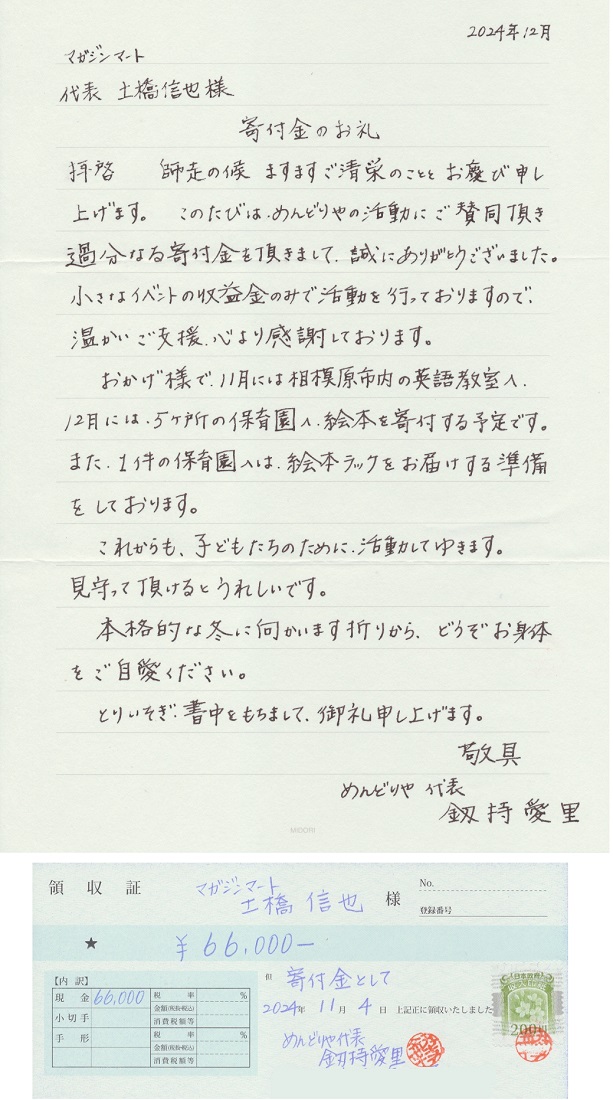 2024年12月
マガジンマート
代表 土橋信也様
寄付金のお礼
拝啓 師走の候 ますますご清栄のことと お慶び申し
上げます。 このたびは、めんどりやの活動にご賛同頂き
過分なる寄付金を頂きまして、誠にありがとうございました。
小さなイベントの収益金のみで活動を行っておりますので、
温かいご支援、心より感謝しております。
おかげ様で、11月には相模原市内の英語教室へ、
12月には、5ヶ所の保育園へ、絵本を寄付する予定です。
また、1件の保育園へは、絵本ラックをお届けする準備
をしております。
これからも、子どもたちのために、活動してゆきます。
見守って頂けるとうれしいです。
本格的な冬に向かいます折りから、どうぞお身体
をご自愛ください。
とりいそぎ、書中をもちまして、御礼申し上げます。
敬具
めんどりや 代表
釼持愛里
MIDORI
領収証 マガジンマート 土橋信也 様
No.
登録番号
★ ¥66,000−
【内訳】
現金 66,000 税率 %
金額(税抜・税込)
小切手 消費税額等
手形 税率 %
金額(税抜・税込)
消費税額等
但 寄付金として
2024年 11月 4日 上記正に領収いたしました
めんどりや代表
釼持愛里
日本政府
収入印紙
200円